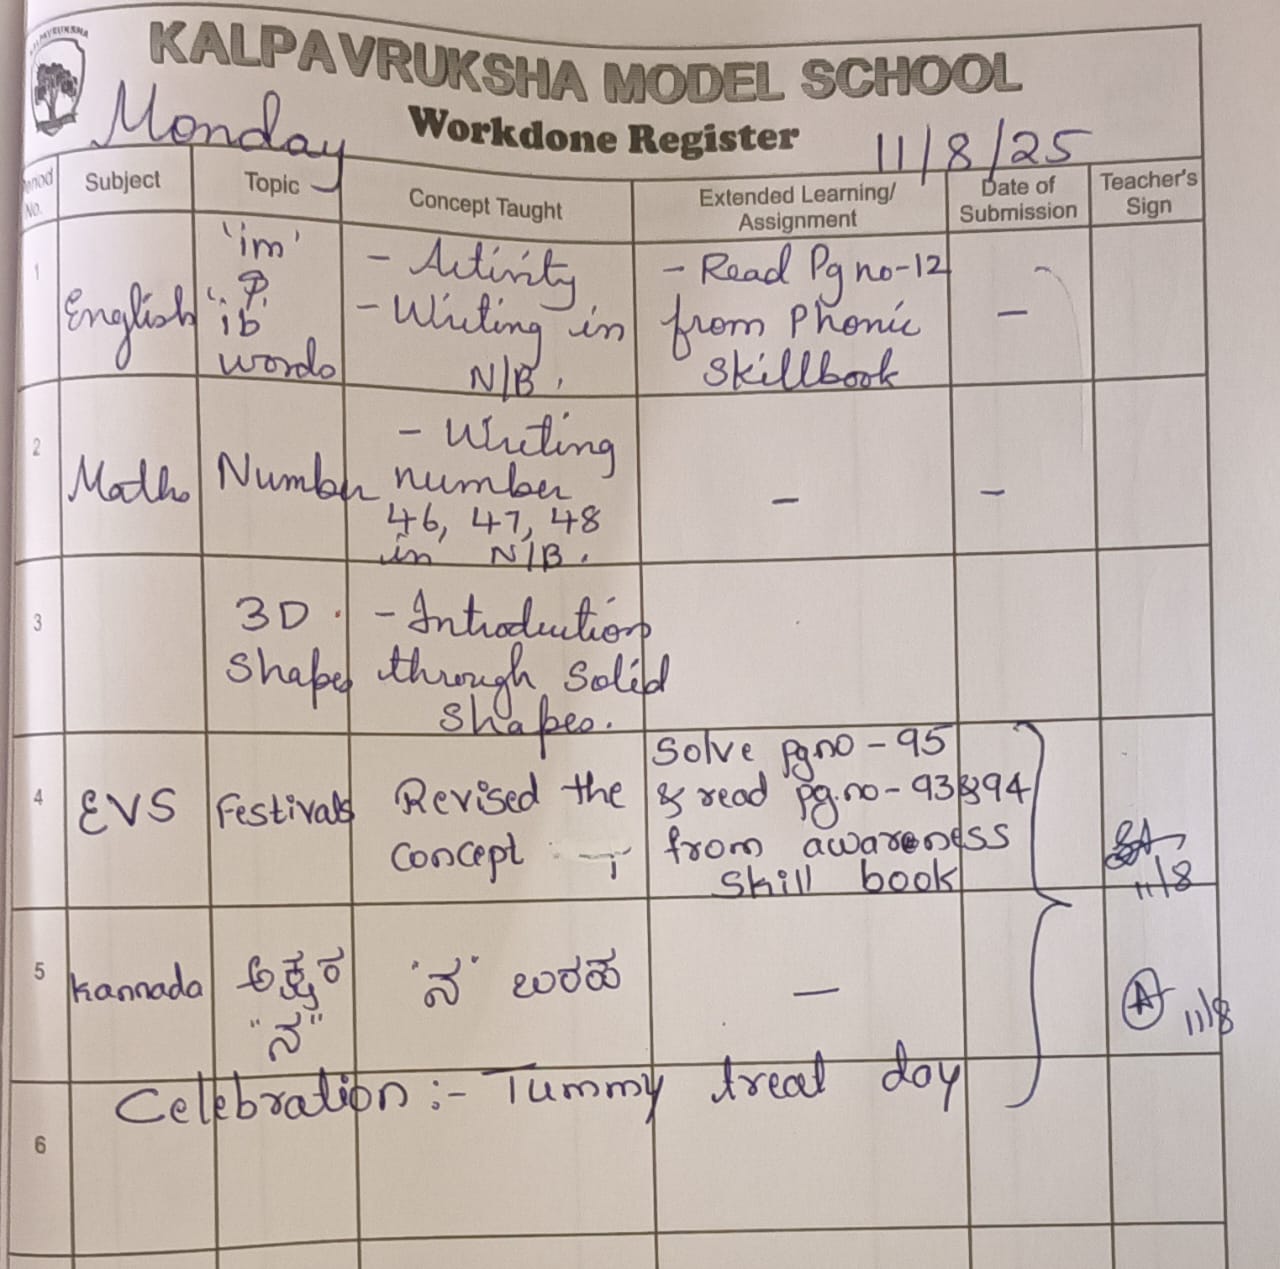 KALPAVRUKSHA
KALPAVRUKSHA MODEL SCHOOL
Monday
Workdone Register
11/8/25
Period No.
Subject
Topic
Concept Taught
Extended Learning/
Assignment
Date of
Submission
Teacher's
Sign
1
English
'im'
&
'ib
words
- Activity
- Writing in
N/B.
- Read Pg no-12
from Phonic
Skillbook
-
2
Maths
Number
- Writing
number
46, 47, 48
in N/B.
-
-
3
3D
Shapes
- Introduction
through Solid
Shapes.
4
EVS
Festivals
Revised the
concept
Solve pg no - 95
& read pg.no- 93&94
from awareness
skill book
11/8
5
kannada
ಅಕ್ಷರ
"ನ"
"ನ" ಬರಹ
-
A 11/8
Celebration :- Tummy treat day
6